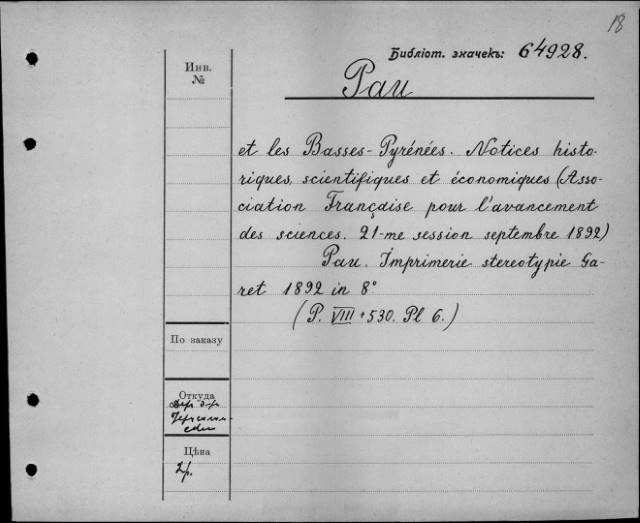 18
Библіот. значекъ: 64928.
Инв.
№
Pau
et les Basses-Pyrénées. Notices histo-
riques, scientifiques et économiques (Asso-
ciation Française pour l'avancement
des sciences. 21-me session septembre 1892)
Pau. Imprimerie stereotypie Ga-
ret 1892 in 8°
(P. VIII + 530. Pl 6.)
По заказу
Откуда
Цѣна
2р.